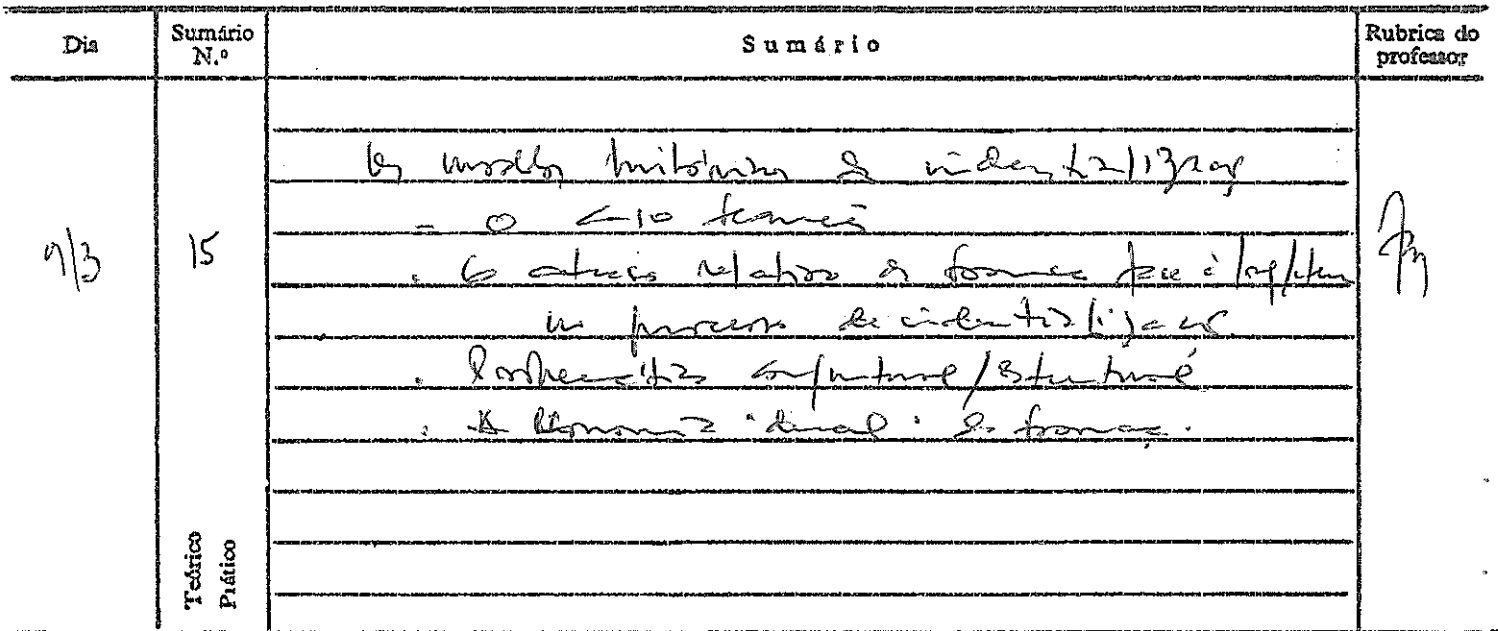 Dia
Sumário N.º
Sumário
Rubrica do professor
9/3
15
Os modelos históricos de industrialização
- O caso francês
. O atraso relativo da França face à Inglaterra
no processo de industrialização.
. conjuntural/estrutural
. A Economia "dual" da França.
Teórico
Prático